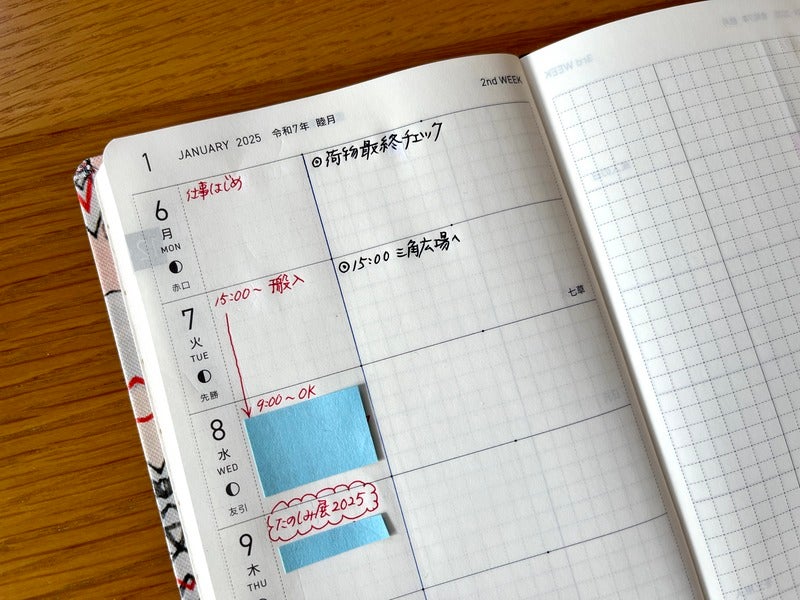 2nd WEEK
1 JANUARY 2025 令和7年 睦月
6
月
MON
赤口
仕事はじめ
⊙荷物最終チェック
7
火
TUE
先勝
15:00〜 搬入
⊙15:00 三角広場へ
七草
8
水
WED
友引
9:00〜OK
9
木
THU
たのしみ展2025
3rd WEEK